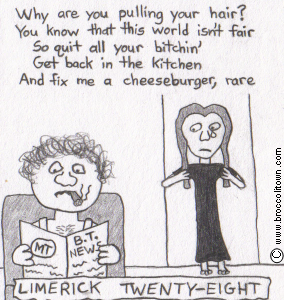 Why are you pulling your hair?
You know that this world isn't fair
So quit all your bitchin'
Get back in the kitchen
And fix me a cheeseburger, rare
MT
B.T.
NEWS
LIMERICK TWENTY-EIGHT
© www.broccolitown.com